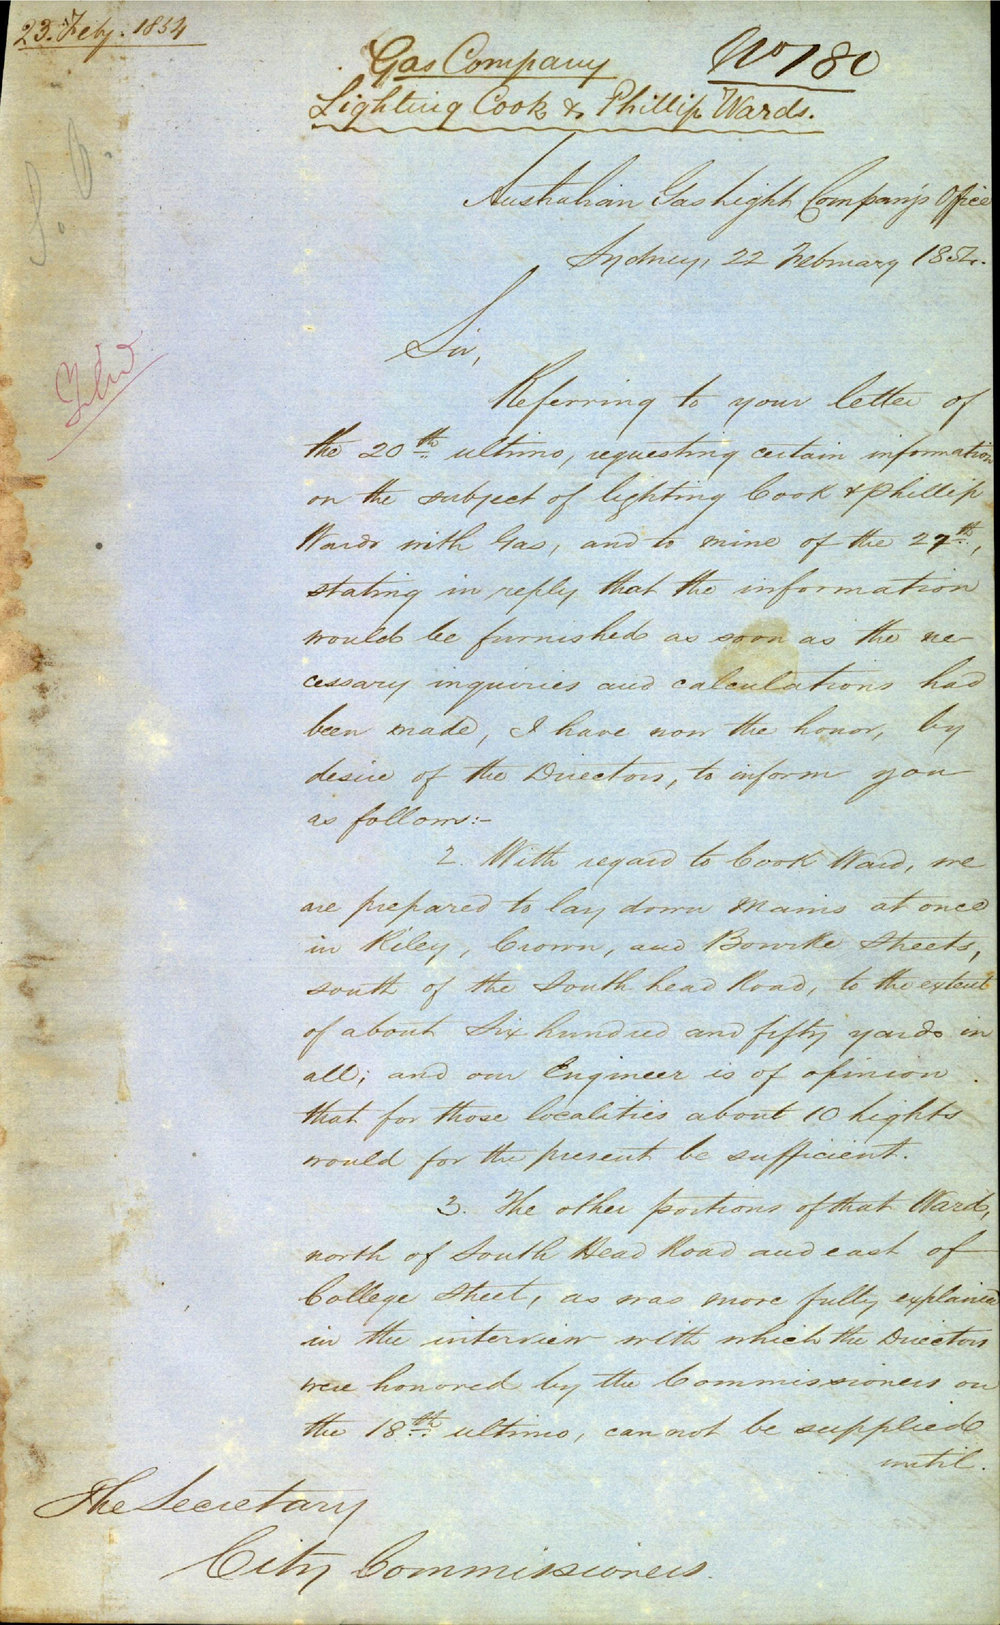 23. Feby. 1854
Gas Company
No 180
Lighting Cook & Phillip Wards.
Australian Gas Light Company's Office
Sydney, 22 February 1854.
Sir,
Referring to your letter of
the 20th ultimo, requesting certain information
on the subject of lighting Cook & Phillip
Wards with Gas, and to mine of the 27th,
stating in reply that the information
would be furnished as soon as the ne-
cessary inquiries and calculations had
been made, I have now the honor, by
desire of the Directors, to inform you
as follows:-
2. With regard to Cook Ward, we
are prepared to lay down Mains at once
in Riley, Crown, and Bourke Streets,
south of the South head Road, to the extent
of about Six hundred and fifty yards in
all; and our Engineer is of opinion
that for those localities about 10 lights
would for the present be sufficient.
3. The other portions of that Ward,
north of South Head Road and east of
College Street, as was more fully explained
in the interview with which the Directors
were honored by the Commissioners on
the 18th ultimo, cannot be supplied
until.
The Secretary
City Commissioners.